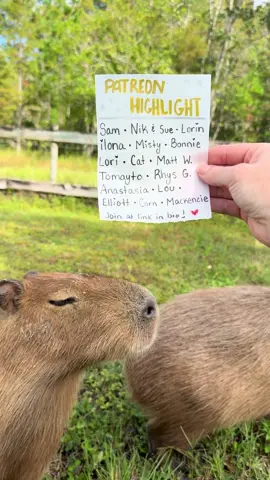 PATREON
HIGHLIGHT
Sam · Nik & Sue · Lorin
ilona · Misty · Bonnie
Lori · Cat · Matt W.
Tomayto · Rhys G.
Anastasia · Lou ·
Elliott · Corn · Mackenzie
Join at link in bio!